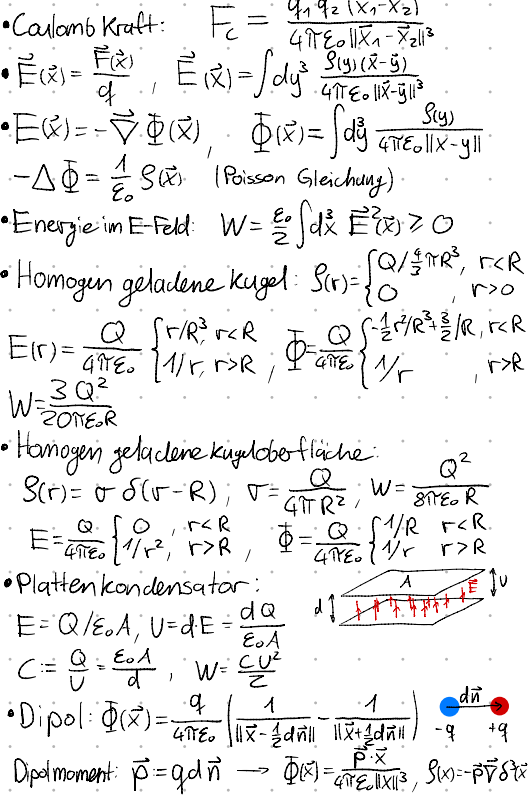 • Coulomb Kraft: F_c = q₁q₂(x₁-x₂) / 4πε₀||x⃗₁-x⃗₂||³
• E⃗(x⃗) = F⃗(x⃗)/q , E⃗(x⃗) = ∫dy³ ρ(y)(x⃗-y⃗) / 4πε₀||x⃗-y⃗||³
• E⃗(x⃗) = -∇⃗ Φ(x⃗) , Φ(x⃗) = ∫dy³ ρ(y) / 4πε₀||x-y||
-ΔΦ = 1/ε₀ ρ(x⃗) (Poisson Gleichung)
• Energie im E-Feld: W = ε₀/2 ∫dx³ E⃗²(x⃗) ≥ 0
• Homogen geladene Kugel: ρ(r) = { Q/ 4/3 πR³, r<R
0 , r>0
E(r) = Q/4πε₀ { r/R³, r<R , Φ = Q/4πε₀ { -1/2 r²/R³ + 3/2 /R, r<R
1/r, r>R 1/r , r>R
W = 3Q² / 20πε₀R
• Homogen geladene Kugeloberfläche:
ρ(r) = σ δ(r-R) , σ = Q / 4πR² , W = Q² / 8πε₀R
E = Q/4πε₀ { 0 , r<R , Φ = Q/4πε₀ { 1/R r<R
1/r², r>R 1/r r>R
• Plattenkondensator:
A
E⃗
U
d
E = Q/ε₀A, U = dE = dQ / ε₀A
C := Q/U = ε₀A/d , W = CU²/2
• Dipol: Φ(x⃗) = q/4πε₀ ( 1/||x⃗-½dn⃗|| - 1/||x⃗+½dn⃗|| )
dn⃗
-q +q
Dipolmoment: p⃗ := qdn⃗ → Φ(x⃗) = p⃗·x⃗ / 4πε₀||x||³ , ρ(x⃗) = -p⃗∇⃗δ³(x⃗